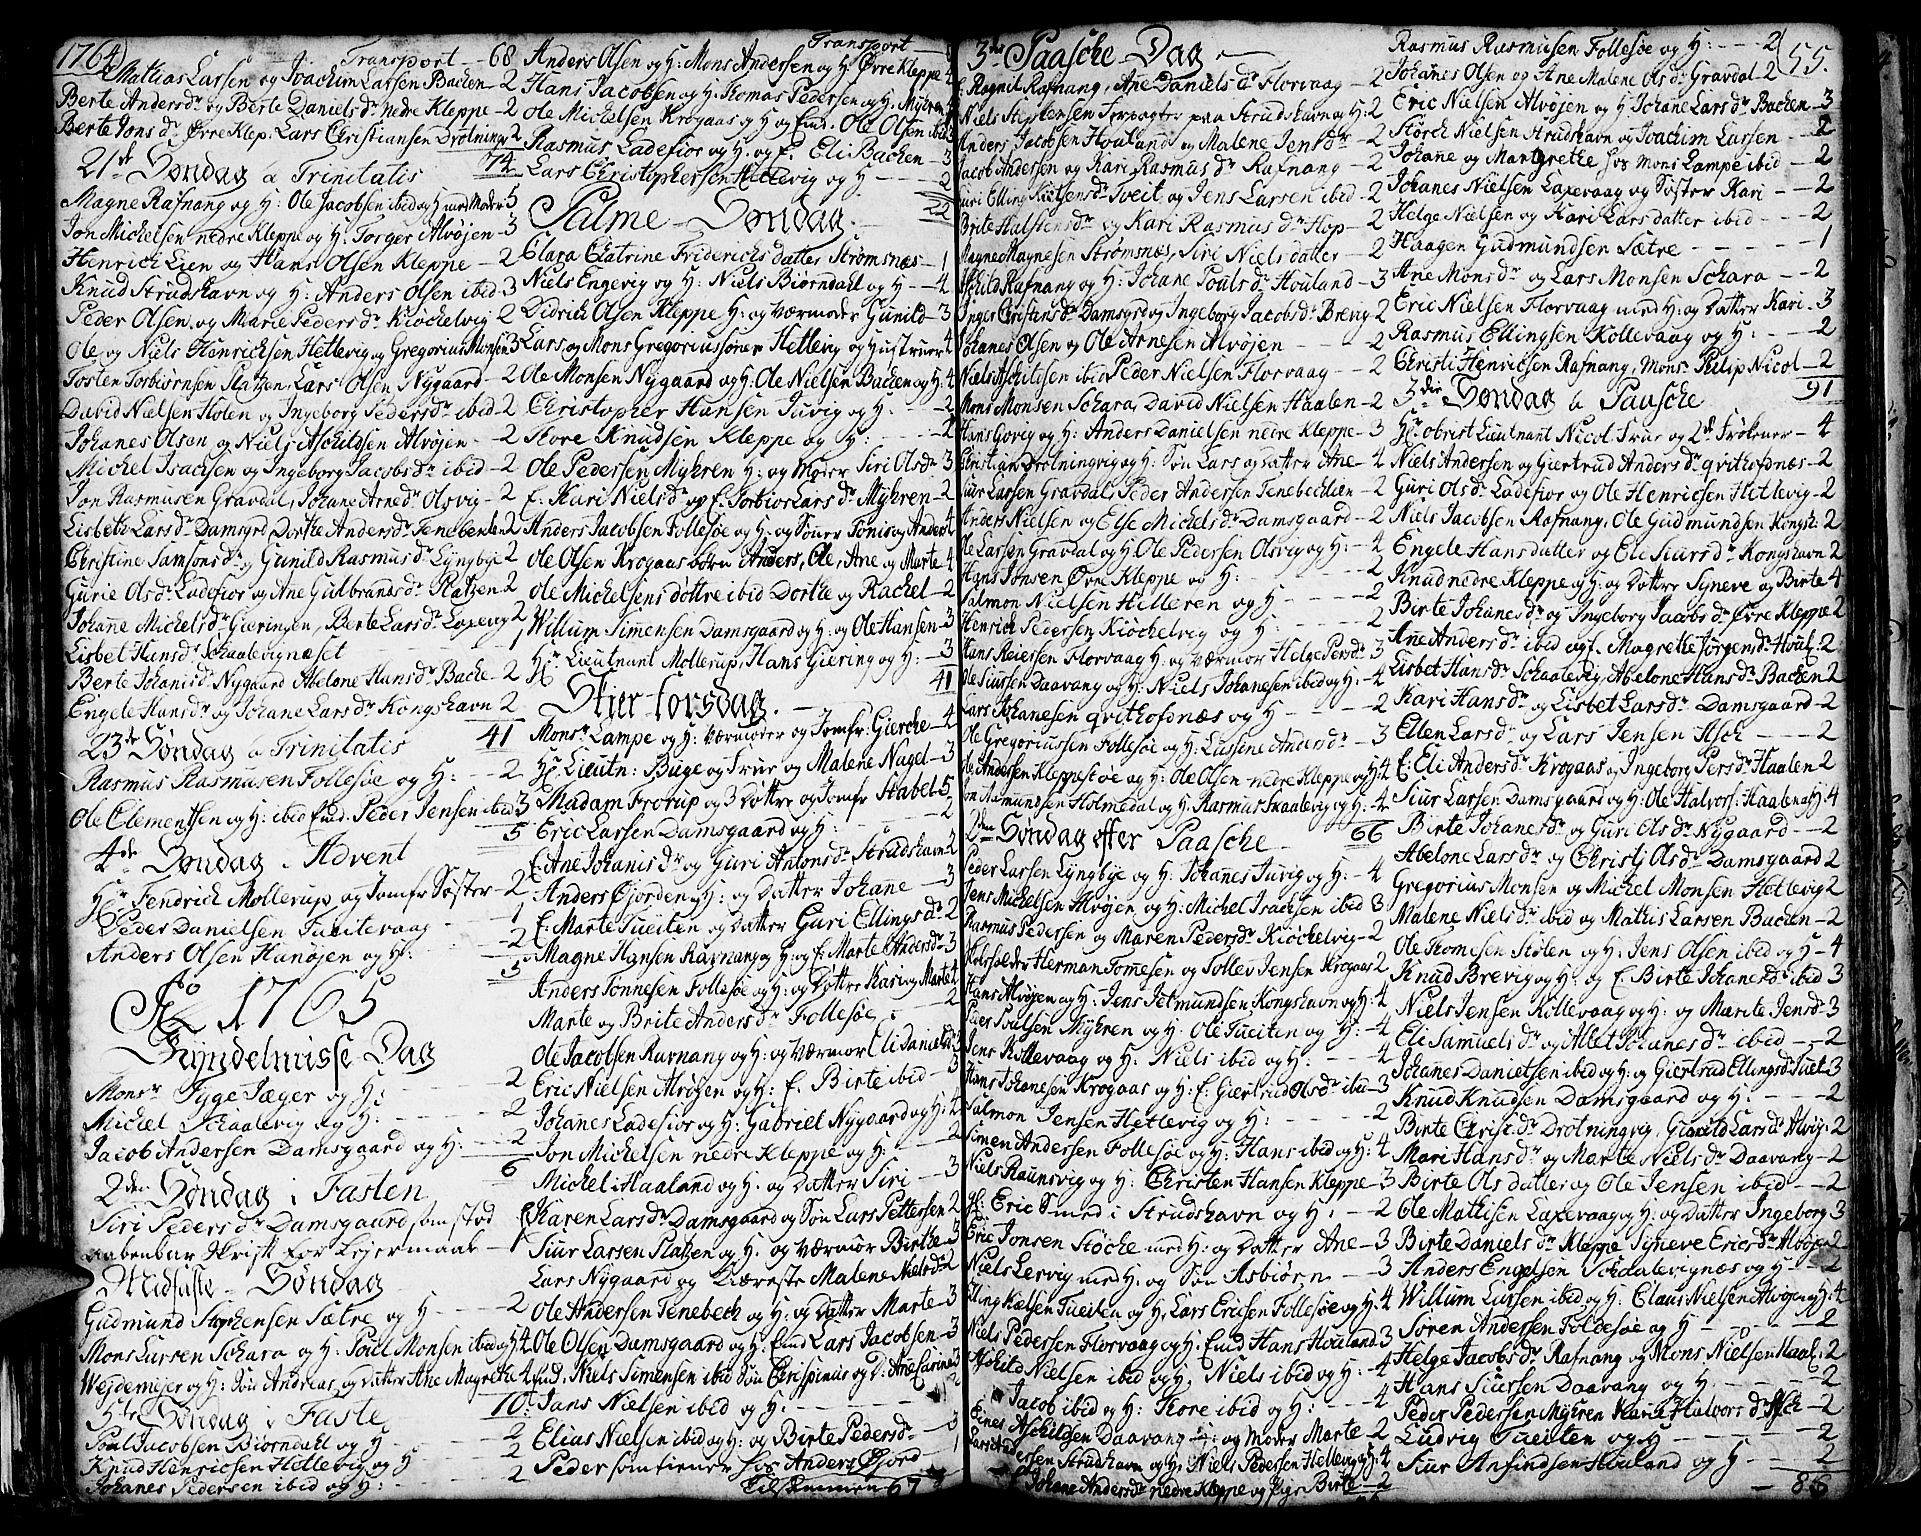 1764
Transport - 68
Mathias Larsen og Joachim Larsen Bachen - 2
Berte Andersdr og Berte Danielsdr nedre Kleppe - 2
Berte Jonsdr Øvre Klep. Lars Christiansen Drotningv 2
74
21de Søndag a Trinitatis
Magne Rafnang og H: Ole Jacobsen ibid og H med Moder 5
Jon Michelsen nedre Kleppe og H: Torger Alvøjen - 3
Henrich Lien og Hans Olsen Kleppe - 2
Knud Strudshavn og H: Anders Olsen ibid - 3
Peder Olsen og Marie Pedersdr Kiøchelvig - 2
Ole og Niels Hanrichsen Hetlevig og Gregorius Monsen 3
Tosten Torbiørnsen Platzen, Lars Olsen Nygaard - 2
David Nielsen Holen og Ingeborg Pedersdr ibid - 2
Johanes Olsen og Niels Aschildsen Alvøjen - 2
Michel Isachsen og Ingeborg Jacobsdr ibid - 2
Jon Rasmusen Gravdal, Johane Arnedr Olsvig - 2
Lisbeth Larsdr Damsgrd, Dorthe Andersdr Tenebech - 2
Christine Samsonsdr og Gunild Rasmusdr Lyngbye 2
Gurie Olsdr Ladefior og Ane Gulbransdr Platzen 2
Johane Michelsdr Gieringen, Berte Larsdr Laxevog 2
Lisbet Hansdr Schaalevignæset - 1
Berte Johanisdr Nygaard Abelone Hansdr Bache - 2
Engele Hansdr og Johane Larsdr Kongshavn 2
41
23de Søndag a Trinitatis
Rasmus Rasmusen Follesøe og H: - 2
Ole Clementsen og H: ibid Emd. Peder Jensen ibid 3
5
4de Søndag i Advent
Hr Fendrich Mollerup og Jomfr Søster - 2
Peder Danielsen Tueitevaag - 1
Anders Olsen Hanøjen og H: - 2
5
Ao 1765
Kyndelmisse-Dag
Monsr Tyge Jæger og H: - 2
Michel Schaalevig og H: - 2
Jacob Andersen Damsgaard og H: - 2
6
2den Søndag i Fasten
Siri Pedersdr Damsgaard som stod
aabenbar Skrift for Lejermaal - 1
Midfaste - Søndag
Gudmund Stephensen Sætre og H - 2
Mons Larsen Schara og H: Poul Monsen ibid og H 4
Wejdemejer og H: Søn Andreas, og datter Ane Magrethe 4
10
5te Søndag i Faste
Poul Jacobsen Biørndahl og H - 2
Knud Henricsen Hetlevig og H - 2
Johanes Pedersen ibid og H: - 2
Transport
Anders Olsen og H: Mons Andersen og H: Øvre Kleppe 4
Hans Jacobsen og H: Thomas Pedersen og H: Myhren
Ole Michelsen Krogaas og H og Emd. Ole Olsen ibid
Rasmus Ladefior og H. og E. Eli Bachen - 3
Lars Christophersen Hetlevig og H - 2
22
Palme - Søndag.
Clara Chatrine Friderichsdatter Strømsnæs - 1
Niels Engevig og H: Niels Biørndahl og H - 4
Didrich Olsen Kleppe H: og Værmoder Gunild - 3
Lars og Mons Gregoriussøner Hetlevig og hustruer 4
Ole Monsen Nygaard og H: Ole Nielsen Bachen og H: 4
Christopher Hansen Juvig og H: - 2
Tore Knudsen Kleppe og H: - 2
Ole Pedersen Myhren H: og Moder Siri Olsdr 3
E. Kari Nielsdr og E. Torbior Larsdr Myhren - 2
Anders Jacobsen Follesøe og H: og Søner Tønis og Anders 4
Ole Olsen Krogaas børn Anders, Ole, Ane og Marte 4
Ole Michelsens døttre ibid Dorthe og Rachel - 2
Willum Simensen Damsgaard og H: og Ole Hansen - 3
Hr Lieutnant Mollerup, Hans Giering og H: - 3
41
Skier torsdag.
Monsr Lampe og H: Værmoder og Jomfr: Gierche - 4
Hr Lieutn: Buge og Frue og Malene Nagel - 3
Madam Frorup og 3 døttre og Jomfr Stabel - 5
Eric Larsen Damsgaard og H: - 2
E. Ane Johanisdr og Guri Antonsdr Strudshavn 2
Anders Fjorden og H: og Datter Johane - 3
E. Marte Tueiten og Datter Guri Ellingsdr 2
Magne Hansen Ravnang og H: og E. Marte Andersdr 3
Anders Tønnesen Follesøe og H: og Døttre Kari og Marte 4
Marte og Brite Andersdr Follesøe - 2
Ole Jacobsen Ravnang og H: og Værmor Eli Danielsdr 3
Eric Nielsen Alvøjen og H: E. Birte ibid - 3
Johanes Ladefior og H: Gabriel Nygaard og H: 4
Jon Michelsen nedre Kleppe og H: - 2
Michel i Haaland og H: og Datter Siri - 3
E. Karen Larsdr Damsgaard og Søn Lars Pettersen 2
Siur Larsen Platzen og H: og Værmor Birthe - 3
Lars Nygaard og Kiæreste Malene Nielsdr 2
Ole Andersen Tenebech og H: og Datter Marte - 3
Ole Olsen Damsgaard og H: og Emd Lars Jacobsen - 3
Niels Simensen ibid Søn Chrispinus og D: Ane Carine 3
Jans Nielsen ibid og H: -
Elias Nielsen ibid og H: og Birte Pedersdr - 3
Peder som tiener hos Anders Fjord - 1
Tilsammen 67
3die Paasche-Dag
55.
E. Ragnil Rafnang, Ane Daniels dr Florvaag - 2
Niels Stephensen Forpagter paa Strudshavn og H: 2
Anders Jacobsen Houland og Malene Jensdr - 2
Jacob Andersen og Kari Rasmusdr Rafnang - 2
Guri Elling Kieldsendr Tveit og Jens Larsen ibid - 2
Birte Halstensdr og Kari Rasmusdr Hop - 2
Magne Magnesen Strømsnæs, Siri Nielsdatter - 2
Aschild Rafnang og H: Johane Poulsdr Houland - 3
Inger Christensdr Damsgrd og Ingeborg Jacobsdr Breng 2
Johanes Olsen og Ole Arnesen Alvøjen - 2
Niels Aschildsen ibid Peder Nielsen Florvaag - 2
Mons Monsen Schara, David Nielsen Haalen - 2
Hans Govig og H: Anders Danielsen nedre Kleppe - 3
Christian Drotningvig og H: Søn Lars og datter Ane - 4
Siur Larsen Gravdal, Peder Andersen Tenebechien - 2
Anders Nielsen og Else Michelsdr Damsgaard - 2
Ole Larsen Gravdal og H: Ole Pedersen Olsvig og H: - 4
Hans Jonsen Øvre Kleppe og H: - 2
Salmon Nielsen Hilleren og H - 2
Henrich Pedersen Kiøchelvig og H: - 2
Hans Reiersen Florvaag H: og Værmor Helge Persdr 3
Ole Siursen Daavang og H: Niels Johanesen ibid og H: - 4
Lars Johanesen qvithofdnæs og H - 2
Ole Gregoriussen Follesøe og H: Lussine Andersdr - 3
Ole Andersen Kleppestøe og H: Ole Olsen nedre Kleppe og H: 4
Jon Aamundsen Holmedal og H: Rasmus Skaalevig og H: - 4
66
2den Søndag efter Paasche
Peder Larsen Lyngbye og H: Johanes Juvig og H: - 4
Jens Michelsen Alvøjen og H: Michel Isachsen ibid 3
Rasmus Pedersen og Maren Pedersdr Kiøchelvig - 2
Herman Tomesen og Tollev Jensen Krogaas 2
Hans Alvøjen og H: Jens Jetmundsen Kongshavn og H: 4
Peer Poulsen Myhren og H: Ole Tueiten og H: - 4
Jens Kollevaag og H: Niels ibid og H: - 4
Hans Johanesen Krogaas og H: E. Giertrud Olsdr ibid - 3
Salmon Jensen Hetlevig og H: - 2
Simen Andersen Follesøe og H: Hans ibid og H: 4
Niels Raunsvig og H: Christen Hansen Kleppe - 3
H. Eric Smed i Strudshavn og H: - 2
Eric Jonsen Støche med H: og Datter Ane - 3
Niels Lervig med H: og Søn Asbiørn - 3
Elling Kielsen Tueiten og H, Lars Ericsen Follesøe og H: 4
Niels Pedersen Florvaag og H: Emd Hans Houland 3
Aschild Nielsen ibid og H, Niels ibid og H: - 4
Jacob ibid og H: Kore ibid og H: - 4
Einer Aschildsen Daavang og Moder Marte - 2
Lars Andersen Strudshavn og H: Niels Pedersen Hetlevig og H: 4
E. Johane Andersdr nedre Kleppe og Pige Birte - 2
Rasmus Rasmusen Follesøe og H: - 2
Johanes Olsen og Ane Malene Olsdr Gravdal 2
Eric Nielsen Alvøjen og H Johane Larsdr Bachen - 3
Størch Nielsen Strudshavn og Joachim Larsen - 2
Johane og Margrethe hos Mons Lampe ibid - 2
Johanes Nielsen Laxevaag og Søster Kari - 2
Helge Nielsen og Kari Larsdatter ibid - 2
Haagen Gudmundsen Sætre - 1
Ane Monsdr og Lars Monsen Schara - 2
Eric Nielsen Florvaag med H: og Datter Kari - 3
Rasmus Ellingsen Kollevaag og H: - 2
Christi Henricsen Rafnang, Monsr Philip Nicol - 2
91
3die Søndag a Paasche
Hr Obrist Lieutnant Nicol Frue og 2de Frøkener - 4
Niels Andersen og Giertrud Andersdr qvithofdnæs - 2
Guri Olsdr Ladefior og Ole Henricsen Hetlevig - 2
Niels Jacobsen Rafnang, Ole Gudmundsen Kongsh: 2
Engele Hansdatter og Eli Siursdr Kongshavn 2
Knud nedre Kleppe og H: og Døttre Syneve og Birte 4
Birte Johanesdr og Ingeborg Jacobsdr Øvre Kleppe 2
Ane Andersdr ibid og E. Magrethe Jørgensdr Houl. 2
Lisbet Hansdr Schaalevig, Abelone Hansdr Bachen 2
Kari Hansdr og Lisbet Larsdr Damsgaard - 2
Ellen Larsdr og Lars Jensen Asch - 2
E. Eli Andersdr Krogaas og Ingeborg Persdr Haalen 2
Siur Larsen Damsgaard og H: Ole Halvors: Haalen og H: 4
Birte Johanesdr og Guri Olsdr Nygaard - 2
Abelone Larsdr og Christj Olsdr Damsgaard 2
Gregorius Monsen og Michel Monsen Hetlevig 2
Malene Nielsdr ibid og Mathis Larsen Bachen - 2
Ole Thomesen Stølen og H: Jens Olsen ibid og H - 4
Knud Brevig og H: og E. Birte Johanesdr ibid 3
Niels Jensen Kollevaag og H: og Marite Jensdr 3
Eli Samuelsdr og Allet Johanesdr ibid - 2
Johanes Danielsen ibid og H: og Giertrud Ellingsdr Tueit 3
Knud Knudsen Damsgaard og H: - 2
Birte Christ.dr Drotningvig, Gunild Larsdr Alvøj: 2
Mari Hansdr og Marte Nielsdr Daavang - 2
Birte Olsdatter og Ole Jensen ibid - 2
Ole Mathisen Laxevaag og H: og Datter Ingeborg 3
Birte Danielsdr Kleppe Syneve Ericsdr Alvøjen 2
Anders Engelsen Schaalevignæs og H - 2
Willum Larsen ibid og H: Claus Nielsen Alvøjen og H: 4
Søren Andersen Foldesøe og H - 2
Helge Jacobsdr Rafnang og Mons Nielsen Haal. 2
Hans Siursen Daavang og H. - 2
Peder Pedersen Myhren Karie Halvorsdr Asch - 2
Ludvig Tueiten og H - 2
Siur Anfindsen Houland og H - 2
86